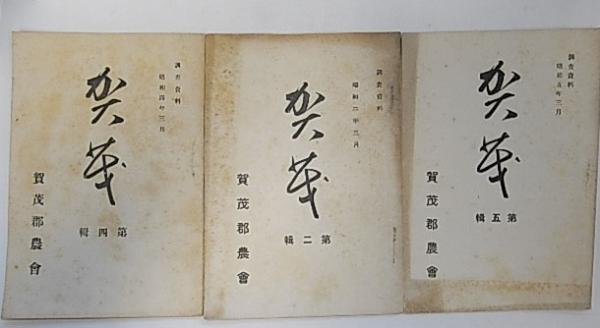 調査資料
昭和四年三月
賀茂
第四輯
賀茂郡農會
調査資料
昭和二年三月
賀茂
第二輯
賀茂郡農會
調査資料
昭和五年三月
賀茂
第五輯
賀茂郡農會